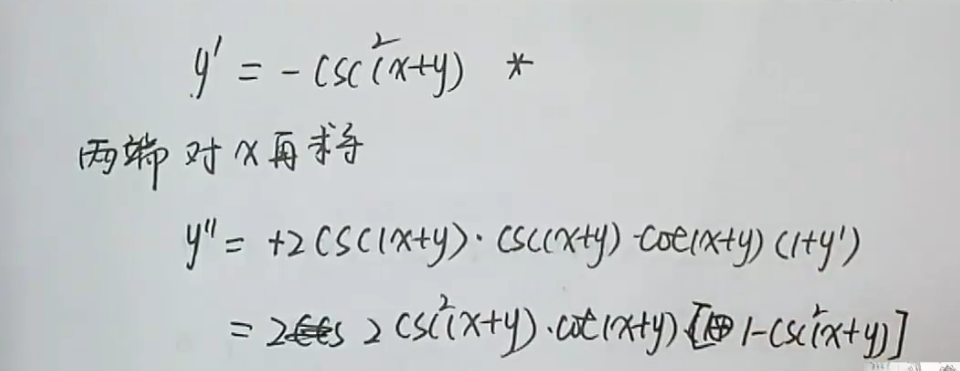 y' = -csc²(x+y) *
两端对x再求导
y'' = +2csc(x+y)·csc(x+y)·cot(x+y)(1+y')
= 2 2csc²(x+y)·cot(x+y)[1-csc²(x+y)]